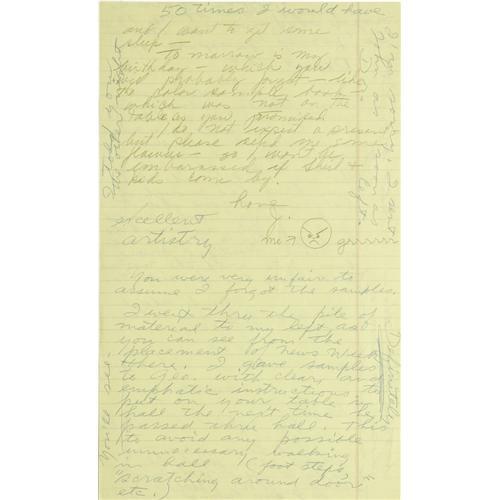 50 times I would have
and I want to get some
sleep —
To marrow is my
birthday — which you
will probably forget — like
the color sample book —
which was not on the
table as you promised
I do not expect a present
but please send me some
flowers — so I won't be
embarrassed if
kids come by.
Love
J.
excellent
artistry
me → grrrrrr
You were very unfair to
assume I forgot the samples.
I went thru the pile of
material to my left, as
you can see from the
placement of News Week
there. I gave samples
to Lee. with clear and
emphatic instructions to
put on your table in
hall the next time he
passed thru hall. This
to avoid any possible
unnecessary walking
in hall (foot steps,
"scratching around door"
etc.)
You'll see.
I told you